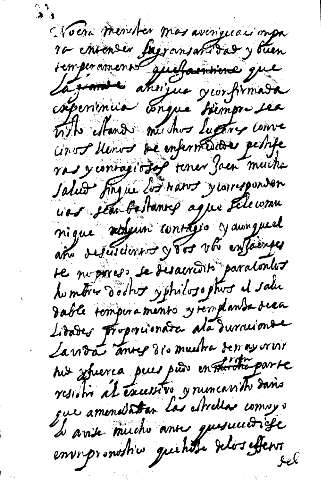 No era menester mas averiguacion pa
ra entender la gran sanidad y buen
temperamento que
La antigua y confirmada
experiencia con que siempre se a
visto estando muchos lugares conve
cinos llenos de enfermedades pestife
ras y contagiosas tener Jaen mucha
salud sin que los tratos y corresponden
cias sean bastantes a que se le comu
nique algun contagio y aunque el
año de seiscientos y dos ubo en Jaen pes
te no por eso se desacredito para con los
hombres doctos y philosophos el salu
dable temperamento y templanza de ca
lidades proporcionada a la duracion de
La vida antes dio muestra de mayor vir
tud y fuerca pues pudo en parte
resistir al excessivo y nunca visto daño
que amenazaban las estrellas como yo
lo avise mucho antes que sucediese
en un pronostico que hice de los effetos
del